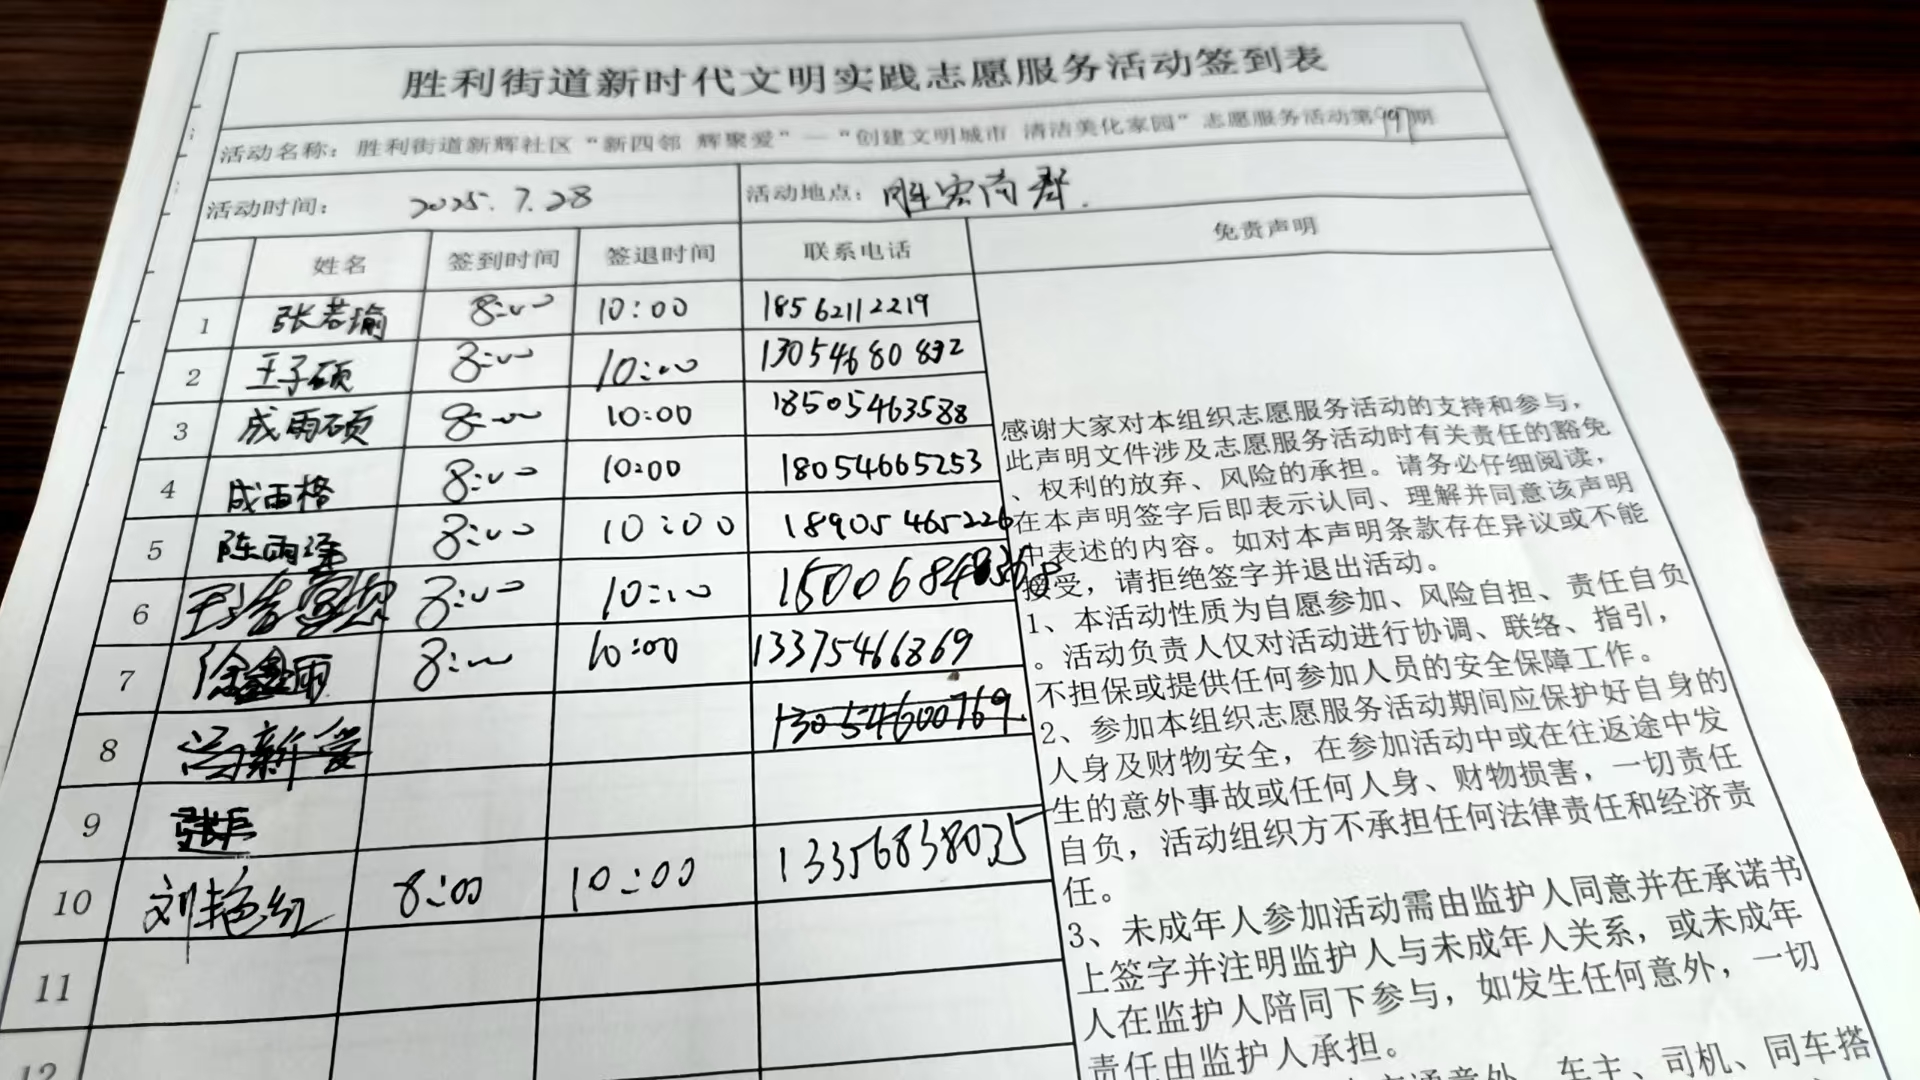 胜利街道新时代文明实践志愿服务活动签到表
活动名称：胜利街道新辉社区“新四邻 辉聚爱”—“创建文明城市 清洁美化家园”志愿服务活动第197期
活动时间： 2025.7.28 活动地点：胜宏尚郡.
姓名 签到时间 签退时间 联系电话 免责声明
1 张若瑜 8:00 10:00 18562112219
2 王子硕 8:00 10:00 13054680832
3 成雨硕 8:00 10:00 18505463588
4 成雨格 8:00 10:00 18054665253
5 陈雨泽 8:00 10:00 18905465226
6 8:00 10:00
7 徐鑫雨 8:00 10:00 13375466869
8 冯新爱 13054600769
9
10 刘艳红 8:00 10:00 13356838035
11
12
感谢大家对本组织志愿服务活动的支持和参与，
此声明文件涉及志愿服务活动时有关责任的豁免
、权利的放弃、风险的承担。请务必仔细阅读，
在本声明签字后即表示认同、理解并同意该声明
中表述的内容。如对本声明条款存在异议或不能
接受，请拒绝签字并退出活动。
1、本活动性质为自愿参加、风险自担、责任自负
。活动负责人仅对活动进行协调、联络、指引，
不担保或提供任何参加人员的安全保障工作。
2、参加本组织志愿服务活动期间应保护好自身的
人身及财物安全，在参加活动中或在往返途中发
生的意外事故或任何人身、财物损害，一切责任
自负，活动组织方不承担任何法律责任和经济责
任。
3、未成年人参加活动需由监护人同意并在承诺书
上签字并注明监护人与未成年人关系，或未成年
人在监护人陪同下参与，如发生任何意外，一切
责任由监护人承担。
交通意外，车主、司机、同车搭